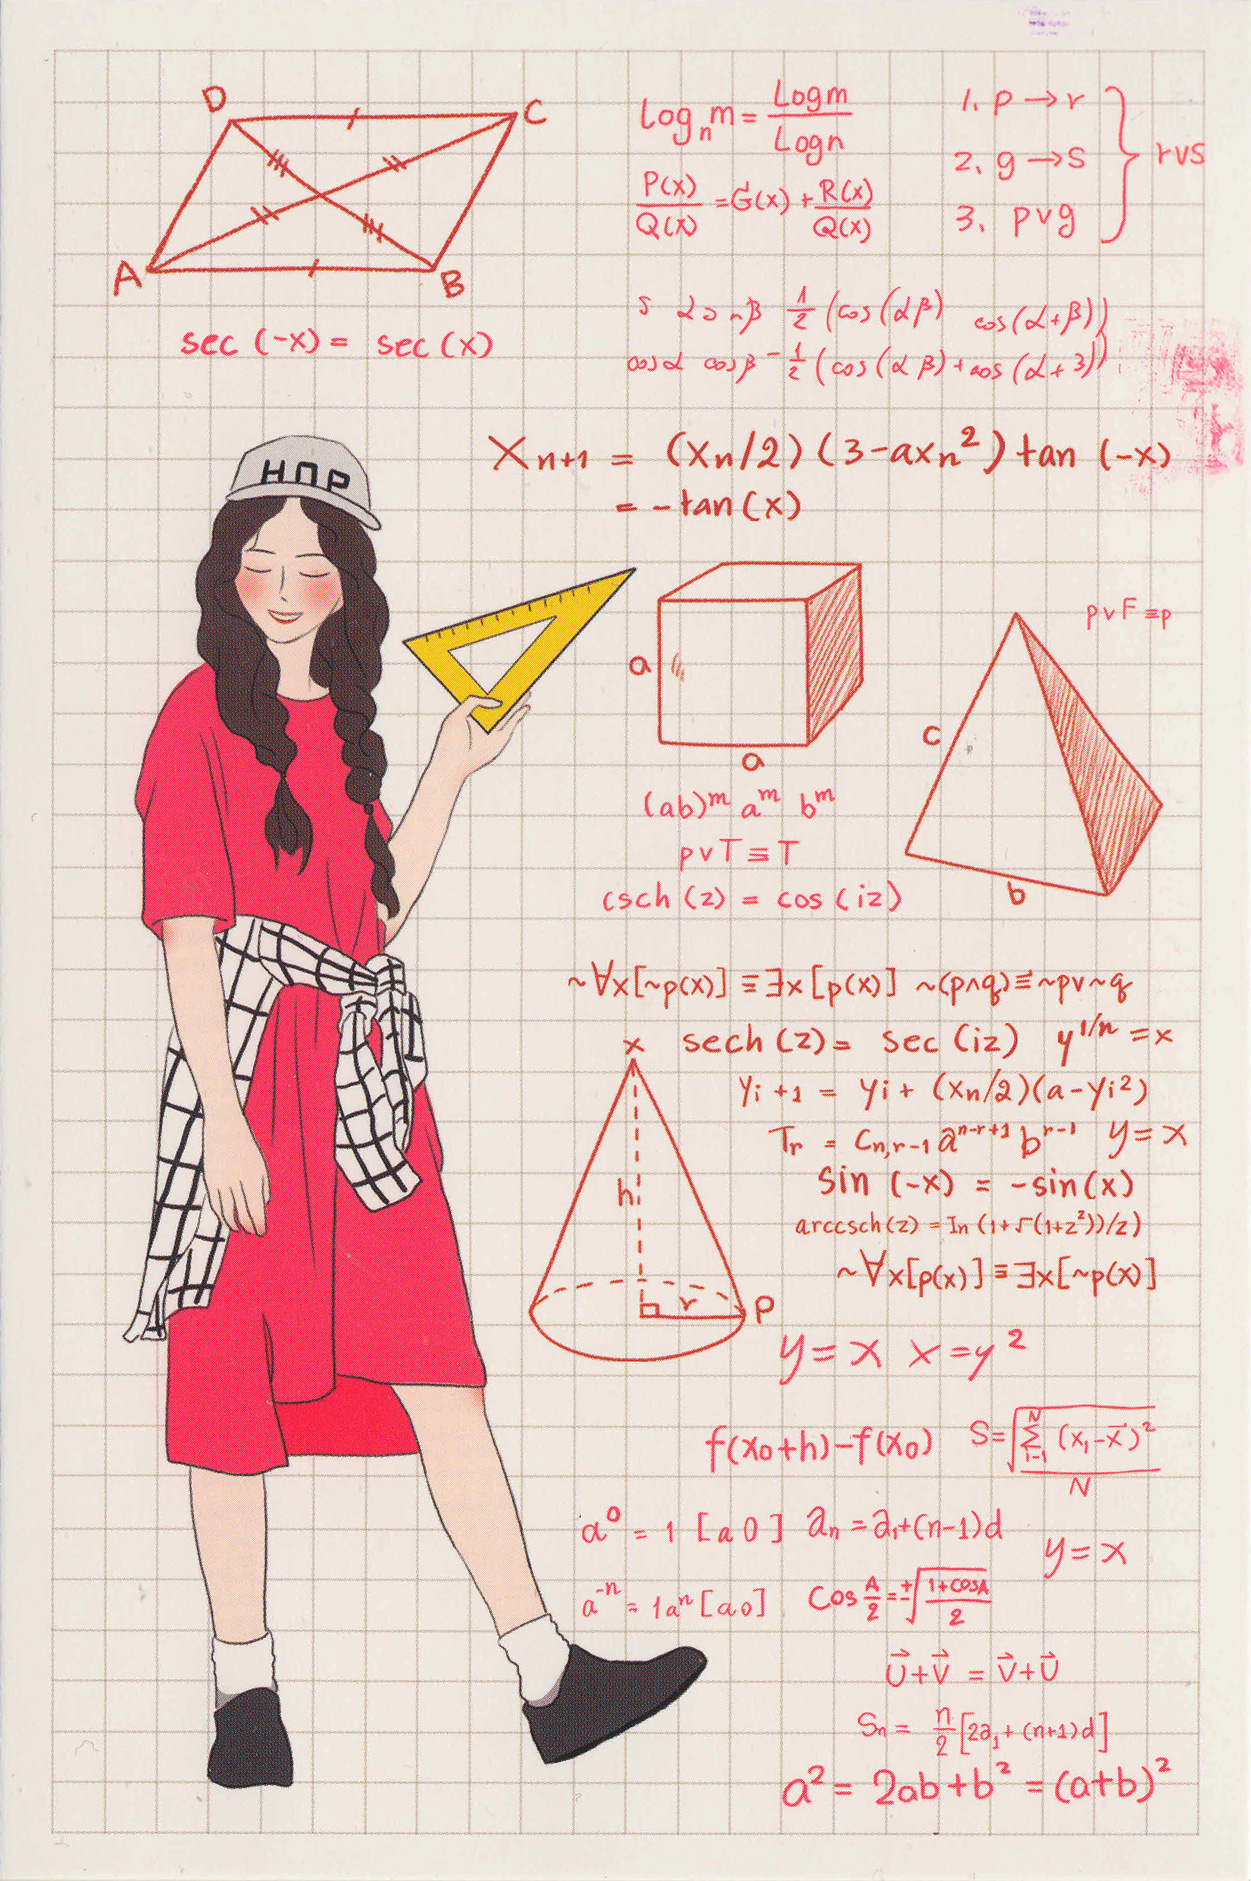 D
C
A
B
sec (-x) = sec (x)
Log_n m = Log m / Log n
P(x)/Q(x) = G(x) + R(x)/Q(x)
1. p → r
2. g → s
3. p v g
} rvs
1/2 (cos(αβ) cos(α+β))
cosα cosβ - 1/2 (cos(αβ) + cos(α+3))
X_{n+1} = (x_n/2) (3-ax_n²) tan (-x)
= - tan (x)
HOP
a
a
c
b
p v F ≡ p
(ab)^m a^m b^m
p v T ≡ T
csch (z) = cos (iz)
~∀x[~p(x)] ≡ ∃x[p(x)] ~(p∧q) ≡ ~p v ~q
sech (z) = sec (iz) y^{1/n} = x
x
h
r
P
y_{i+1} = y_i + (x_n/2)(a-y_i²)
T_r = C_{n,r-1} a^{n-r+1} b^{r-1} y = x
sin (-x) = -sin(x)
arccsch(z) = In (1+√(1+z²))/z)
~∀x[p(x)] ≡ ∃x[~p(x)]
y = x x = y²
f(x_0+h) - f(x_0)
S = √(Σ_{i-1}^{N} (x_1 - x⃗)² / N)
a⁰ = 1 [a 0] a_n = a_1+(n-1)d
y = x
a^{-n} = 1a^n [a 0]
Cos A/2 = ±√(1+cosA / 2)
U⃗ + V⃗ = V⃗ + U⃗
S_n = n/2 [2a_1 + (n+1)d]
a² = 2ab + b² = (a+b)²